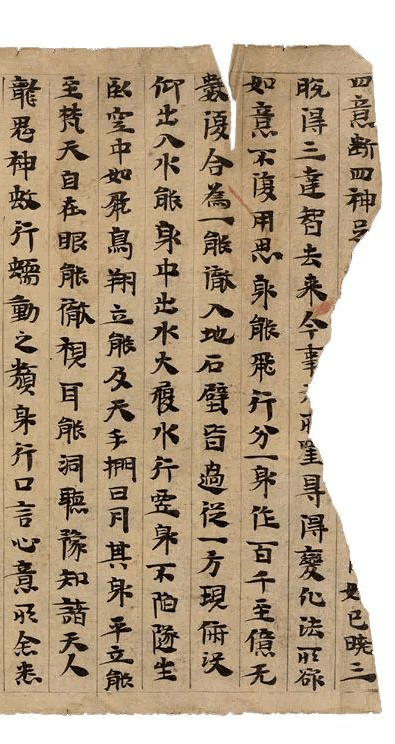 四意断四神已晓三
晓得三達智去来今事无所罣㝵得變化法所欲
如意不復用思身能飛行分一身作百千至億无
數復合為一能徹入地石壁皆過從一方現俯没
仰出入水能身中出水火履水行虛身不陷墜坐
臥空中如飛鳥翔立能及天手捫日月其身平立能
至梵天自在眼能徹視耳能洞聽豫知諸天人
龍鬼神蚑行蠕動之類身行口言心意所念悉